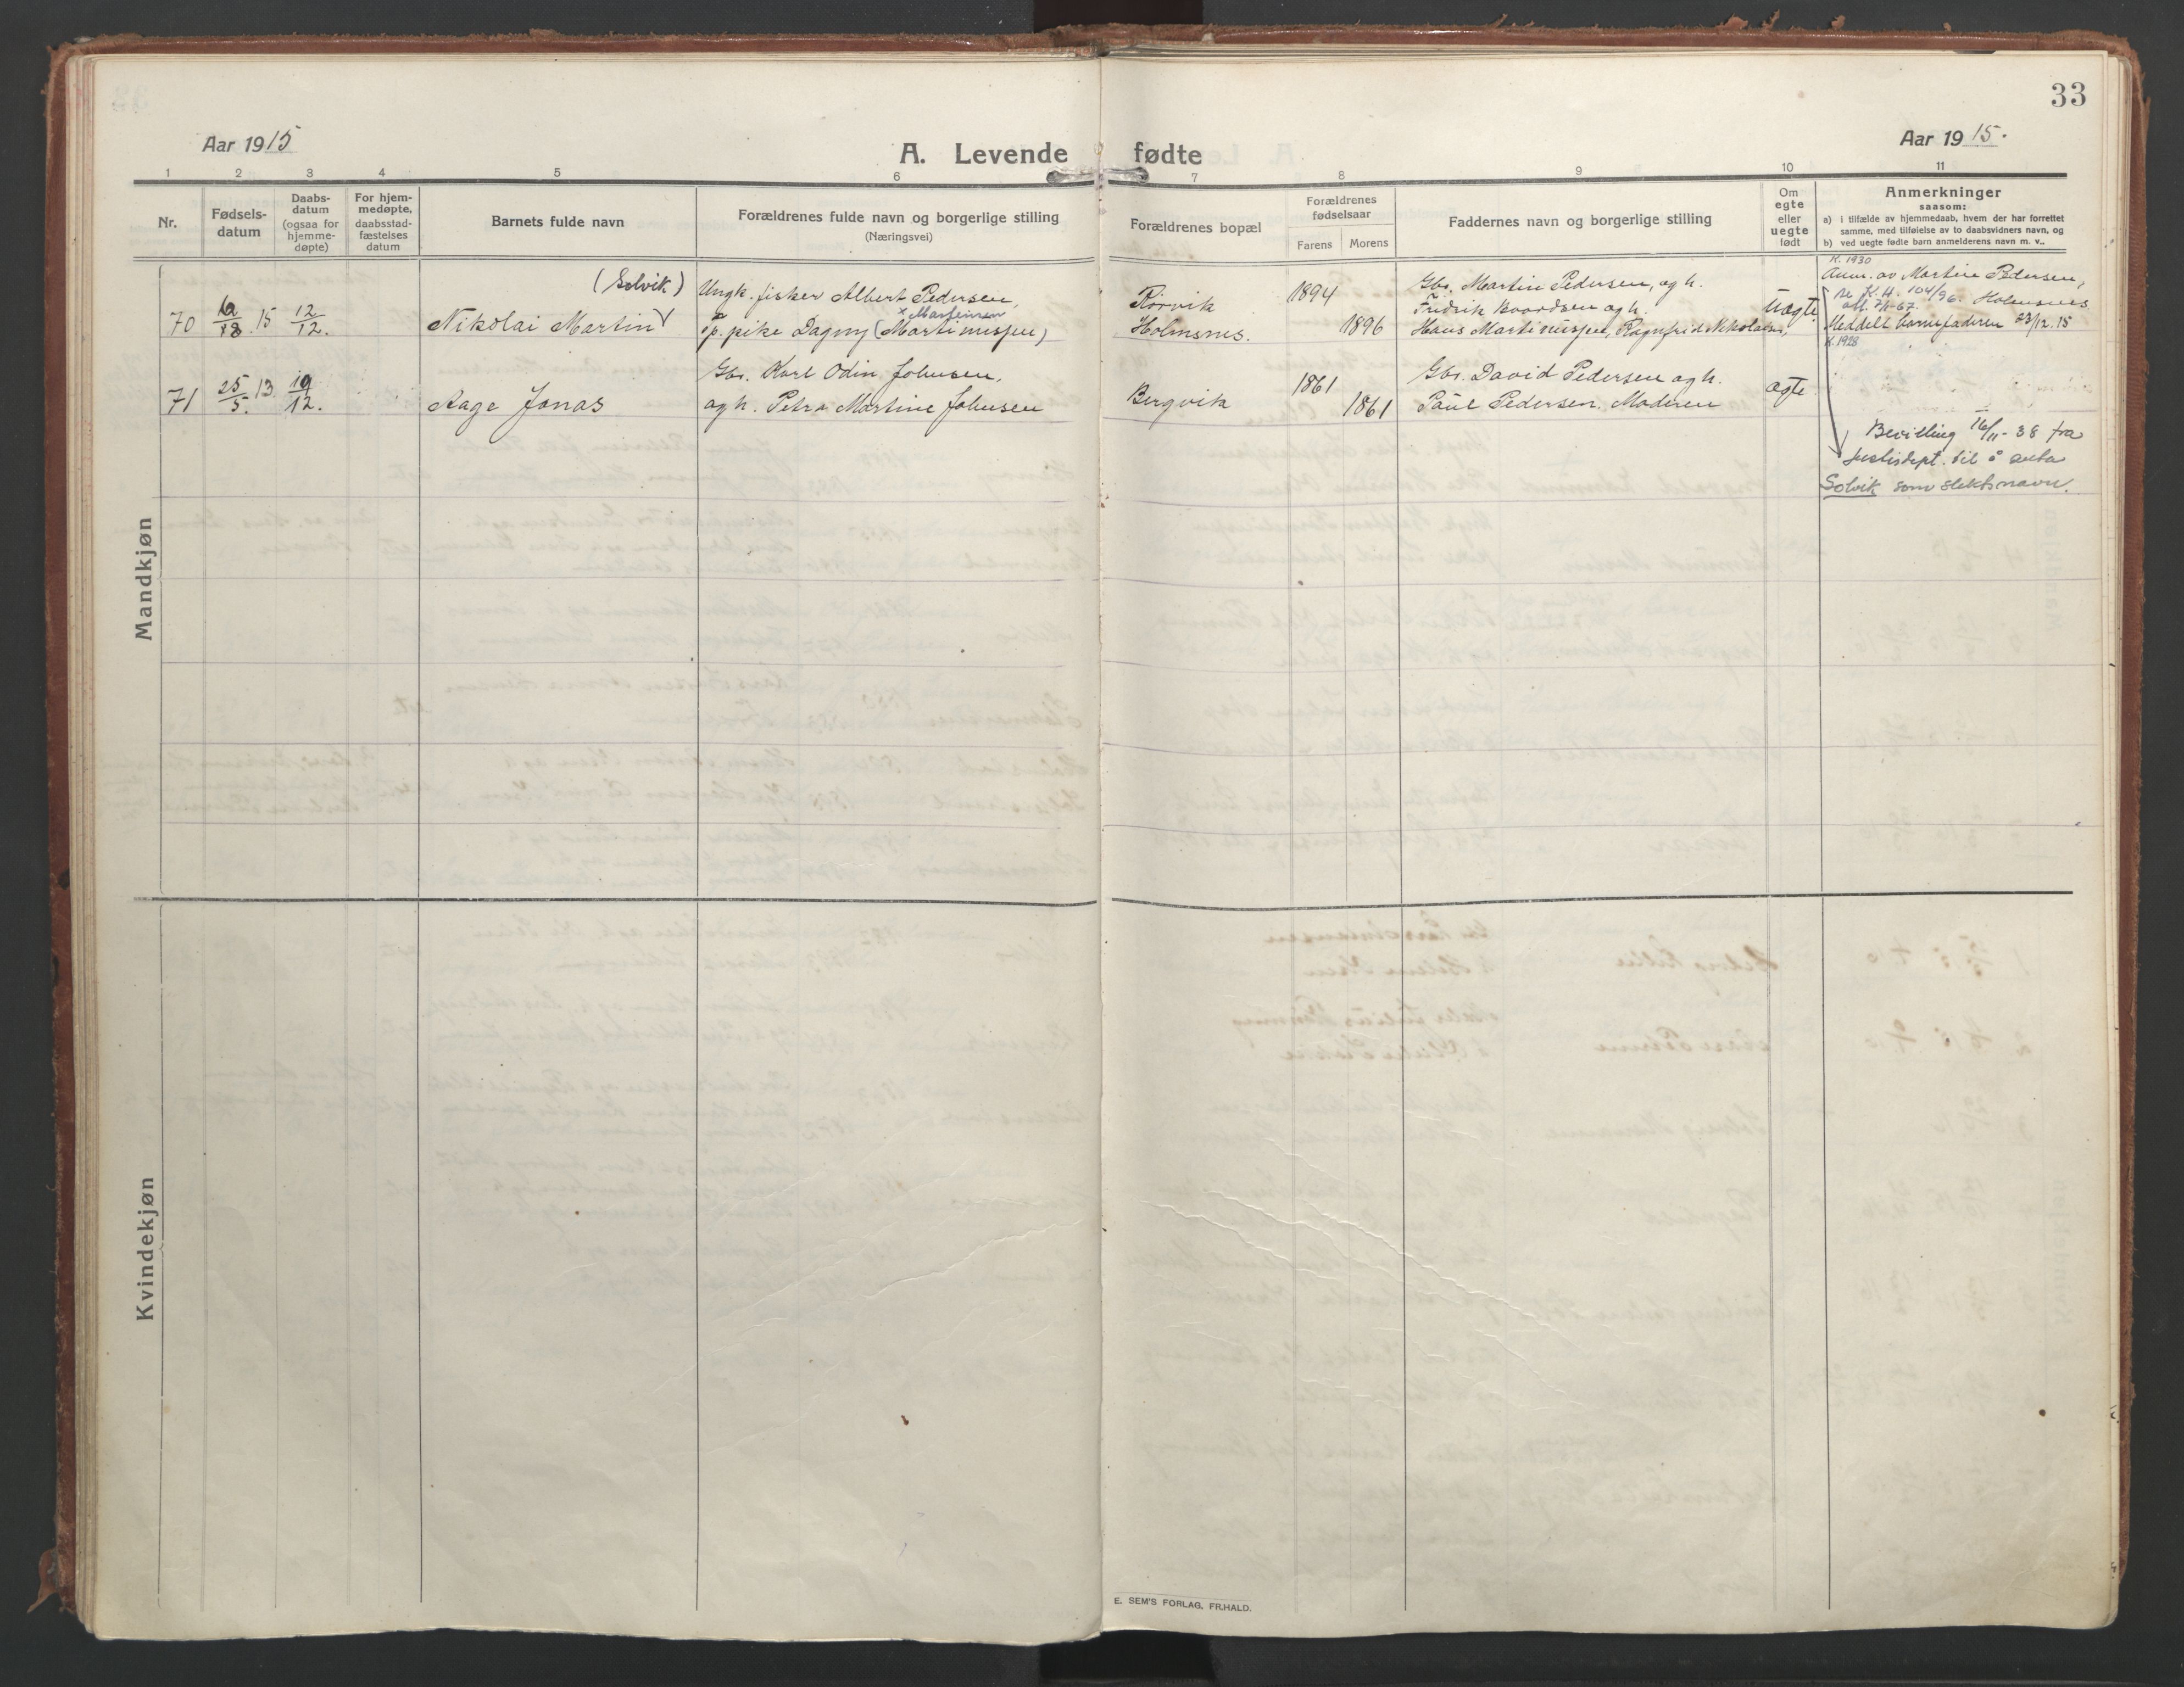 33
Aar 1915
Aar 1915.
A. Levende fødte
1 2 3 4 5 6 7 8 9 10 11
Nr.
Fødsels-
datum
Daabs-
datum
(ogsaa for
hjemme-
døpte)
For hjem-
medøpte,
daabsstad-
fæstelses
datum
Barnets fulde navn
Forældrenes fulde navn og borgerlige stilling
(Næringsvei)
Forældrenes bopæl
Forældrenes
fødselsaar
Farens Morens
Faddernes navn og borgerlige stilling
Om
egte
eller
uegte
født
Anmerkninger
saasom:
a) i tilfælde av hjemmedaab, hvem der har forrettet
samme, med tilføielse av to daabsvidners navn, og
b) ved uegte fødte barn anmelderens navn m. v..
Mandkjøn
70 15 12/12.
(Solvik)
Nikolai Martin
Ungk. fisker Albert Pedersen,
x Marteinsen
p. pike Dagny (Martinussen)
Rörvik
Holmsnes.
1894
1896
Gbr. Martin Pedersen, og h.
Fridrik Baardsen og h.
Hans Martinussen, Ragnfrid Nikolaisen,
uægte
K. 1930
Anm. av Martin Pedersen,
K.H. 104/96. Holmsnes
att. 7/11-67.
Meddelt barnefaderen 23/12.15
K. 1928
71 25/5. 13 19/12.
Aage Jonas
Gbr. Karl Odin Johnsen,
og h. Petra Martine Johnsen
Bergvik
1861
1861
Gbr. David Pedersen og h.
Paul Pedersen. Moderen
ægte
Bevilling 16/11-38 fra
Justisdept. til å anta
Solvik som slektsnavn.
Kvindekjøn
E. SEM'S FORLAG, FR.HALD.